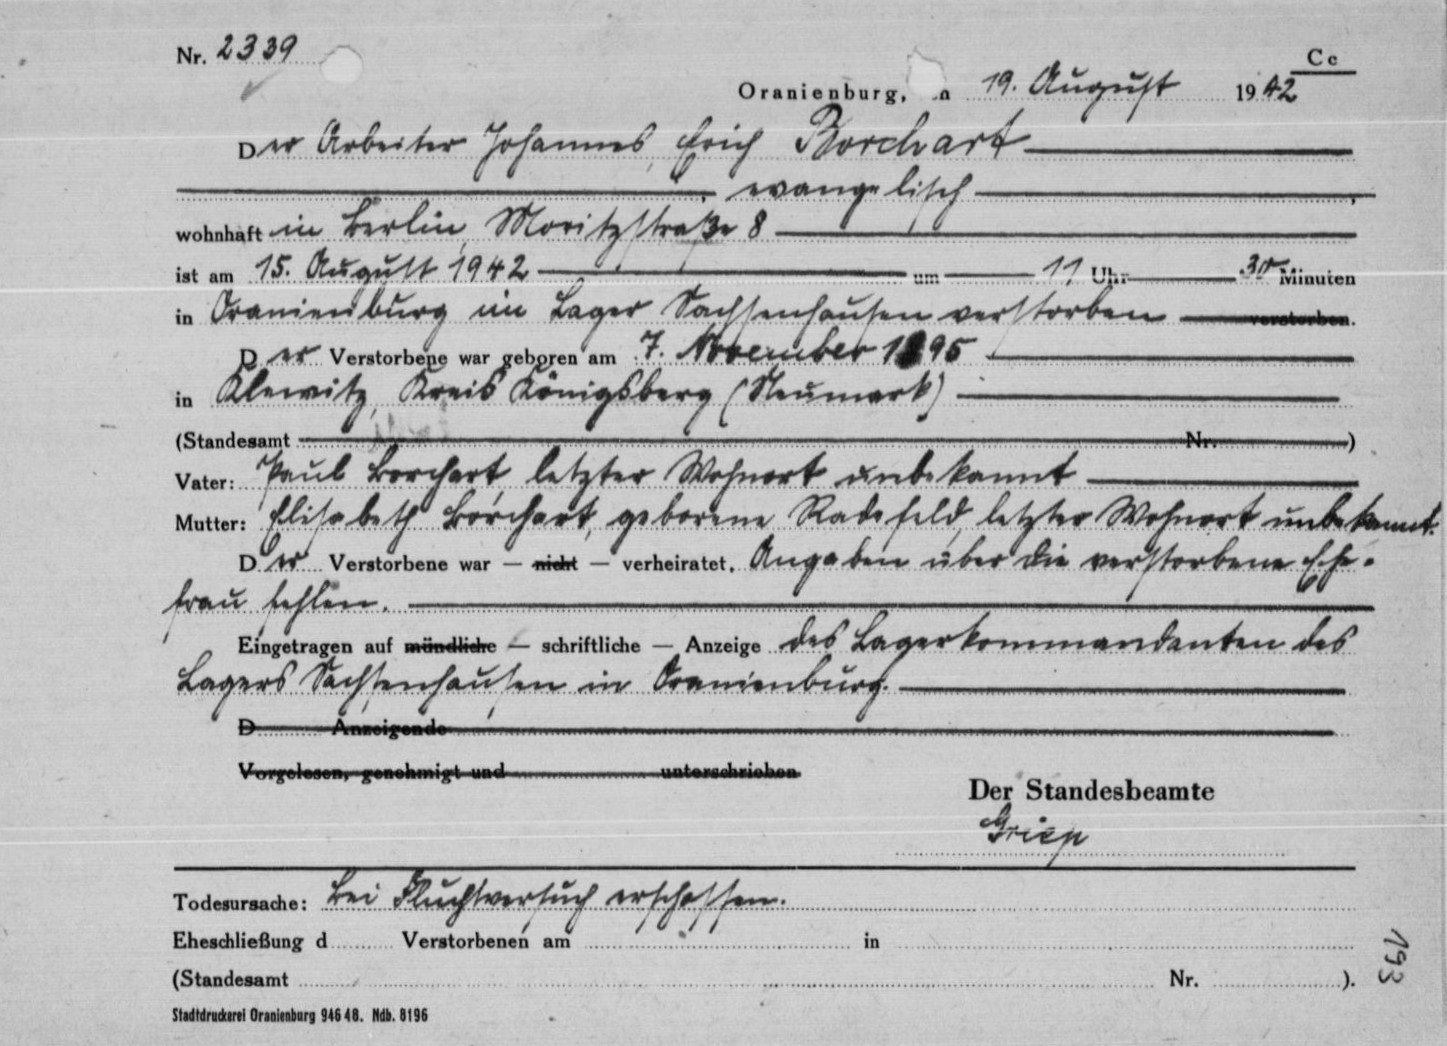 Nr. 2339
Cc
Oranienburg, n 19. August 1942
Der Arbeiter Johannes, Erich Borchart
, evangelisch ,
wohnhaft in Berlin, Moritzstraße 8
ist am 15. August 1942 um 11 Uhr 30 Minuten
in Oranienburg im Lager Sachsenhausen verstorben verstorben.
Der Verstorbene war geboren am 7. November 1895
in Klewitz, Kreis Königsberg (Neumark)
(Standesamt Nr. )
Vater: Paul Borchart, letzter Wohnort unbekannt
Mutter: Elisabeth Borchart, geborene Radefeld, letzter Wohnort unbekannt.
Der Verstorbene war — nicht — verheiratet. Angaben über die verstorbene Ehe-
frau fehlen.
Eingetragen auf mündliche — schriftliche — Anzeige des Lagerkommandanten des
Lagers Sachsenhausen in Oranienburg.
D Anzeigende
Vorgelesen, genehmigt und unterschrieben
Der Standesbeamte
Griep
Todesursache: Bei Fluchtversuch erschossen.
Eheschließung d Verstorbenen am in
(Standesamt Nr. ).
193
Stadtdruckerei Oranienburg 946 48. Ndb. 8196